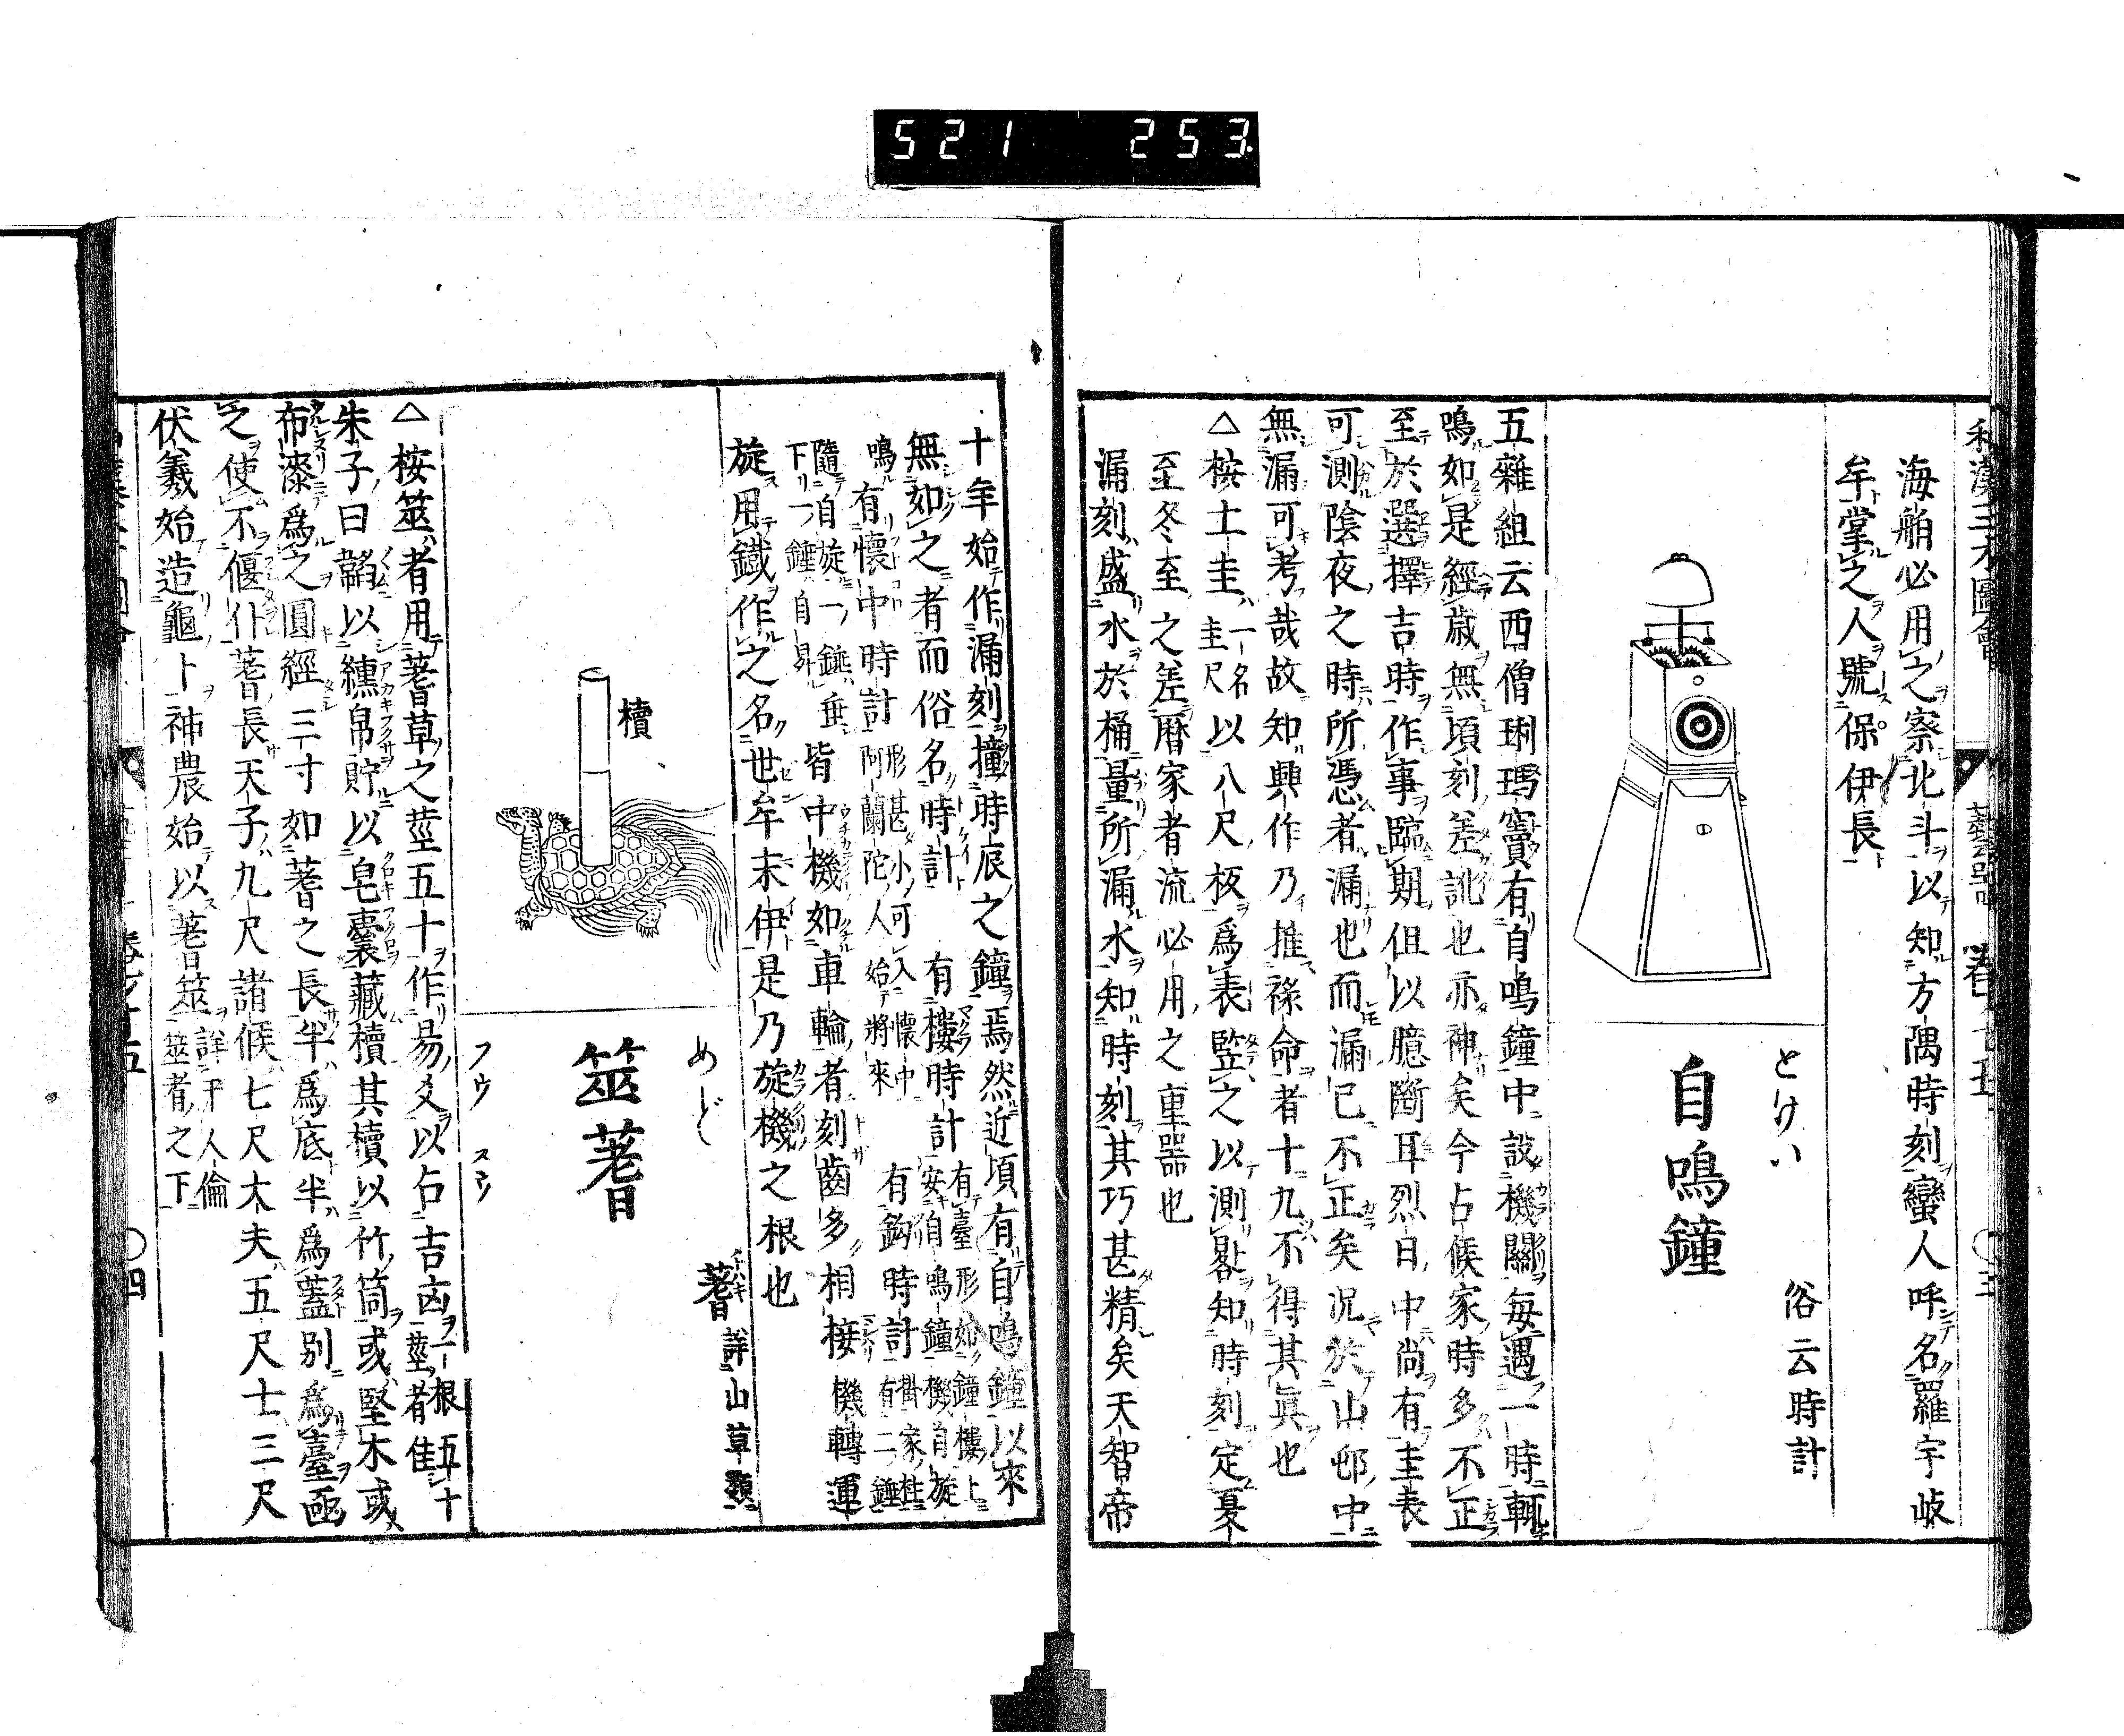 521 253
和漢三才圖會 藝器 卷之十五 ○三
海舶必用之察北斗以知方隅時刻蠻人呼名羅宇岐
牟掌之人號保伊長
とけい
自鳴鐘
俗云時計
五雜組云西僧琍瑪竇有自鳴鐘中設機關毎遇一時輒
鳴如是經歳無頃刻差訛也亦神矣今占候家時多不正
至於選擇吉時作事臨期但以臆斷耳烈日中尚有圭表
可測陰夜之時所憑者漏也而漏已不正矣况於山邨中
無漏可考哉故知興作乃推祿命者十九不得其眞也
△按土圭 一名圭尺 以八尺板爲表竪之以測晷知時刻定夏
至冬至之差暦家者流必用之重器也
漏刻盛水於桶量所漏水知時刻其巧甚精矣天智帝
十年始作漏刻撞時辰之鐘焉然近頃有自鳴鐘以來
無如之者而俗名時計 有樓時計 有臺形如鐘樓上安自鳴鐘機自旋
鳴 有懷中時計 形甚小可入懷中阿蘭陀人始將來 有鈎時計 掛家柱有二錘
隨自旋一錘垂下一錘自昇 皆中機如車輪者刻齒多相椄機轉運
旋用鐵作之名世牟末伊是乃旋機之根也
櫝
めど
筮蓍
フウ スウ
蓍 詳山草類
△按筮者用蓍草之莖五十作易爻以占吉凶 一根五十莖者佳
朱子曰韜以纁帛貯以皂囊藏櫝其櫝以竹筒或堅木或
布漆爲之圓經三寸如蓍之長半爲底半爲蓋別爲臺函
之使不偃仆蓍長天子九尺諸候七尺大夫五尺士三尺
伏羲始造龜卜神農始以蓍筮 詳于人倫筮者之下
○四